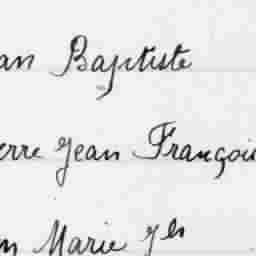 an Baptiste
erre Jean Françoi
n Marie J